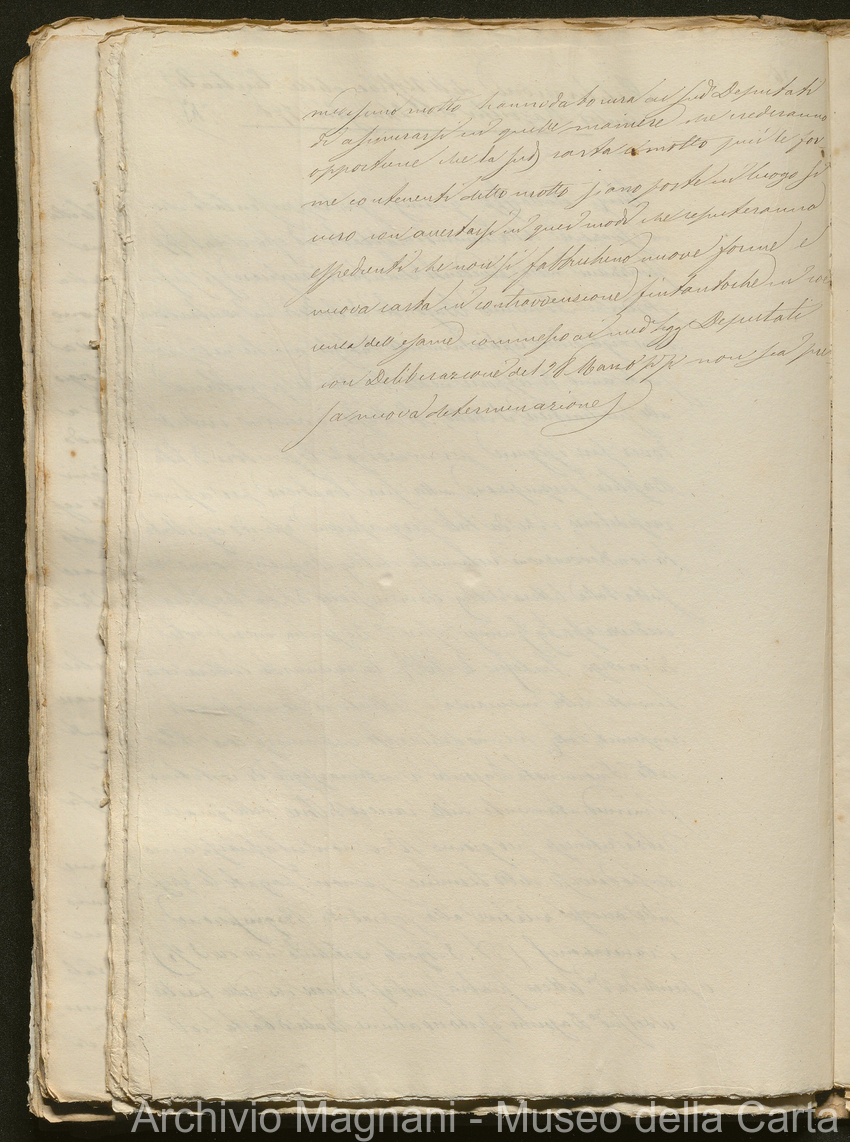 medesimo motto hanno dato cura ai sud.i Deputati
di assicurarsi in quelle maniere che crederanno
opportune che la sud.a carta al motto più le for
me contenenti detto motto siano poste in luogo si
curo con accertarsi in quei modi che reputeranno
espedienti che non si fabbrichino nuove forme e
nuova carta in contravvenzione fintantoche in
dell'esame commesso ai med. Sigg.i Deputati
con Deliberazione del 28 Marzo p.p. non sia pre
sa nuova determinazione
Archivio Magnani - Museo della Carta